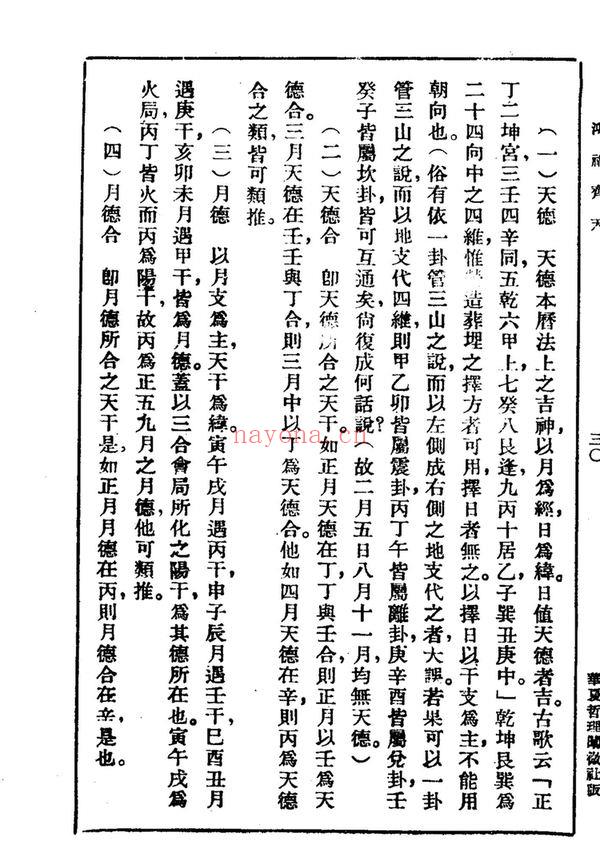 鴻福齊天
三〇
華夏哲理闡微社版
（一）天德　天德本曆法上之吉神，以月爲經，日爲緯。日值天德者吉。古歌云「正
丁二坤宮，三壬四辛同，五乾六甲上，七癸八艮逢，九丙十居乙，子巽丑庚中。」乾坤艮巽爲
二十四向中之四維，惟營造葬埋之擇方者可用，擇日者無之。以擇日以干支爲主，不能用
朝向也。（俗有依一卦管三山之說，而以左側或右側之地支代之者，大誤。若果可以一卦
管三山之說，而以地支代四維，則甲乙卯皆屬震卦，丙丁午皆屬離卦，庚辛酉皆屬兌卦，壬
癸子皆屬坎卦，皆可互通矣，尙復成何話說？（故二月五日八月十一月，均無天德。）
（二）天德合　卽天德所合之天干。如正月天德在丁，丁與壬合，則正月以壬爲天
德合。三月天德在壬，壬與丁合，則三月中以丁爲天德合。他如四月天德在辛，則丙爲天德
合之類，皆可類推。
（三）月德　以月支爲主，天干爲緯。寅午戌月遇丙干，申子辰月遇壬干，巳酉丑月
遇庚干，亥卯未月遇甲干，皆爲月德。蓋以三合會局所化之陽干，爲其德所在也。寅午戌爲
火局，丙丁皆火而丙爲陽干，故丙爲正五九月之月德，他可類推。
（四）月德合　卽月德所合之天干是。如正月月德在丙，則月德合在辛，是也。
nayona.cn